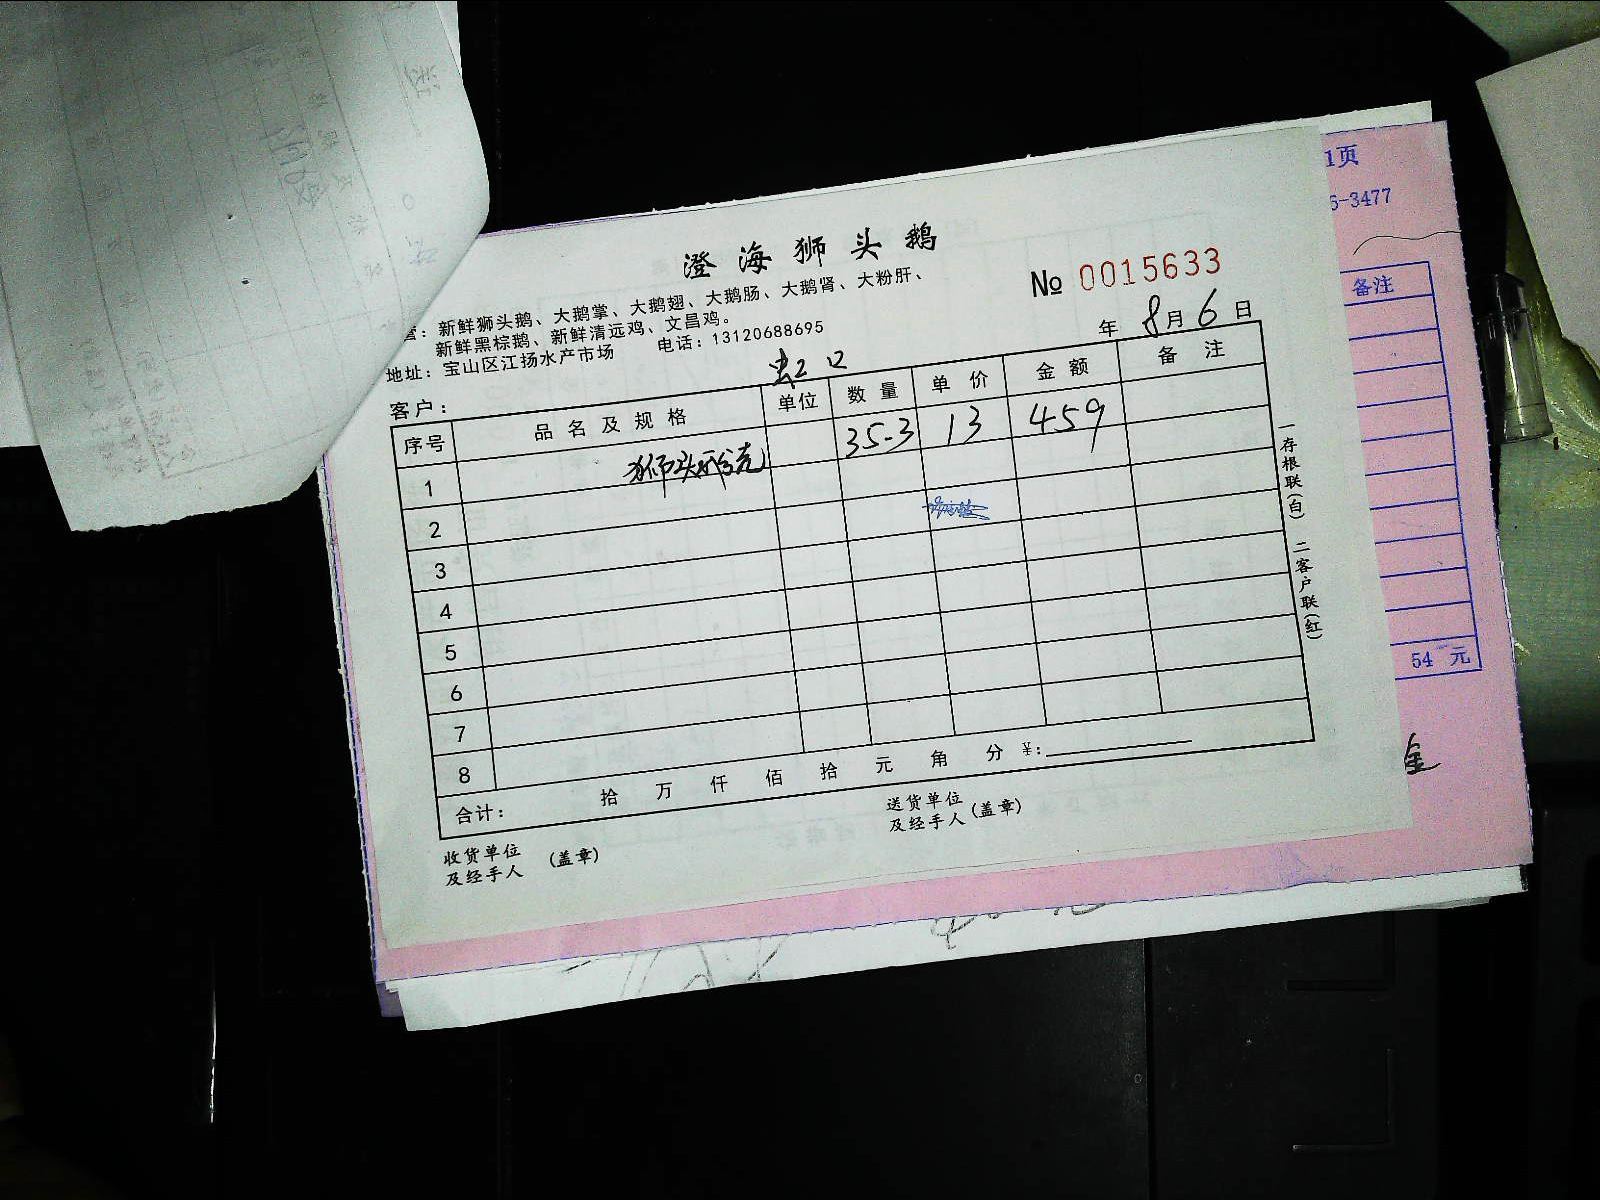 澄海狮头鹅
营：新鲜狮头鹅、大鹅掌、大鹅翅、大鹅肠、大鹅肾、大粉肝、
新鲜黑棕鹅、新鲜清远鸡、文昌鸡。
地址：宝山区江扬水产市场 电话：13120688695
№ 0015633
年 8月6日
客户： 虹口
序号 品名及规格 单位 数量 单价 金额 备注
1 狮头 35-3 13 459
2
3
4
5
6
7
8
合计： 拾 万 仟 佰 拾 元 角 分 ¥:
收货单位
及经手人 (盖章)
送货单位
及经手人 (盖章)
一存根联(白) 二客户联(红)
1页
5-3477
备注
54 元
金